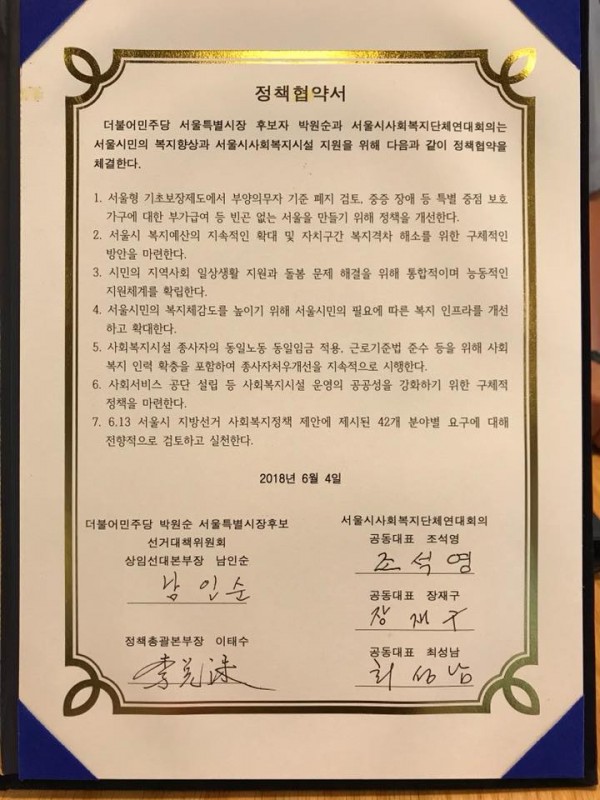 정책협약서
더불어민주당 서울특별시장 후보자 박원순과 서울시사회복지단체연대회의는
서울시민의 복지향상과 서울시사회복지시설 지원을 위해 다음과 같이 정책협약을
체결한다.
1. 서울형 기초보장제도에서 부양의무자 기준 폐지 검토, 중증 장애 등 특별 중점 보호
가구에 대한 부가급여 등 빈곤 없는 서울을 만들기 위해 정책을 개선한다.
2. 서울시 복지예산의 지속적인 확대 및 자치구간 복지격차 해소를 위한 구체적인
방안을 마련한다.
3. 시민의 지역사회 일상생활 지원과 돌봄 문제 해결을 위해 통합적이며 능동적인
지원체계를 확립한다.
4. 서울시민의 복지체감도를 높이기 위해 서울시민의 필요에 따른 복지 인프라를 개선
하고 확대한다.
5. 사회복지시설 종사자의 동일노동 동일임금 적용, 근로기준법 준수 등을 위해 사회
복지 인력 확충을 포함하여 종사자처우개선을 지속적으로 시행한다.
6. 사회서비스 공단 설립 등 사회복지시설 운영의 공공성을 강화하기 위한 구체적
정책을 마련한다.
7. 6.13 서울시 지방선거 사회복지정책 제안에 제시된 42개 분야별 요구에 대해
전향적으로 검토하고 실천한다.
2018년 6월 4일
더불어민주당 박원순 서울특별시장후보
선거대책위원회
상임선대본부장 남인순
남인순
정책총괄본부장 이태수
서울시사회복지단체연대회의
공동대표 조석영
조석영
공동대표 장재구
장재구
공동대표 최성남
최성남